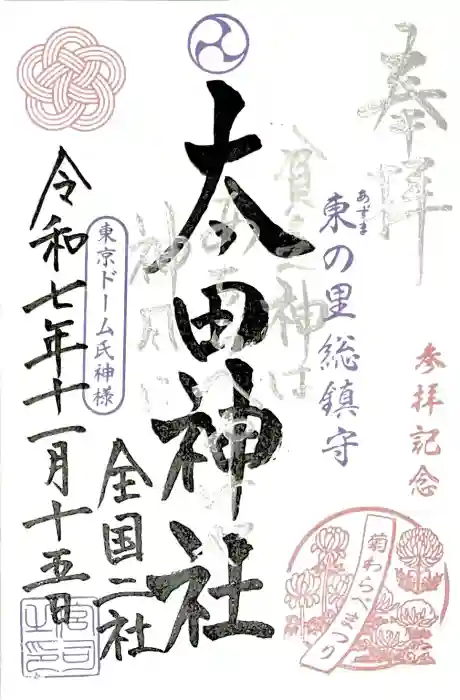 奉拝
参拝記念
東の里総鎮守
あずま
太田神社
全国二社
東京ドーム氏神様
令和七年十一月十五日
菊わらべまつり